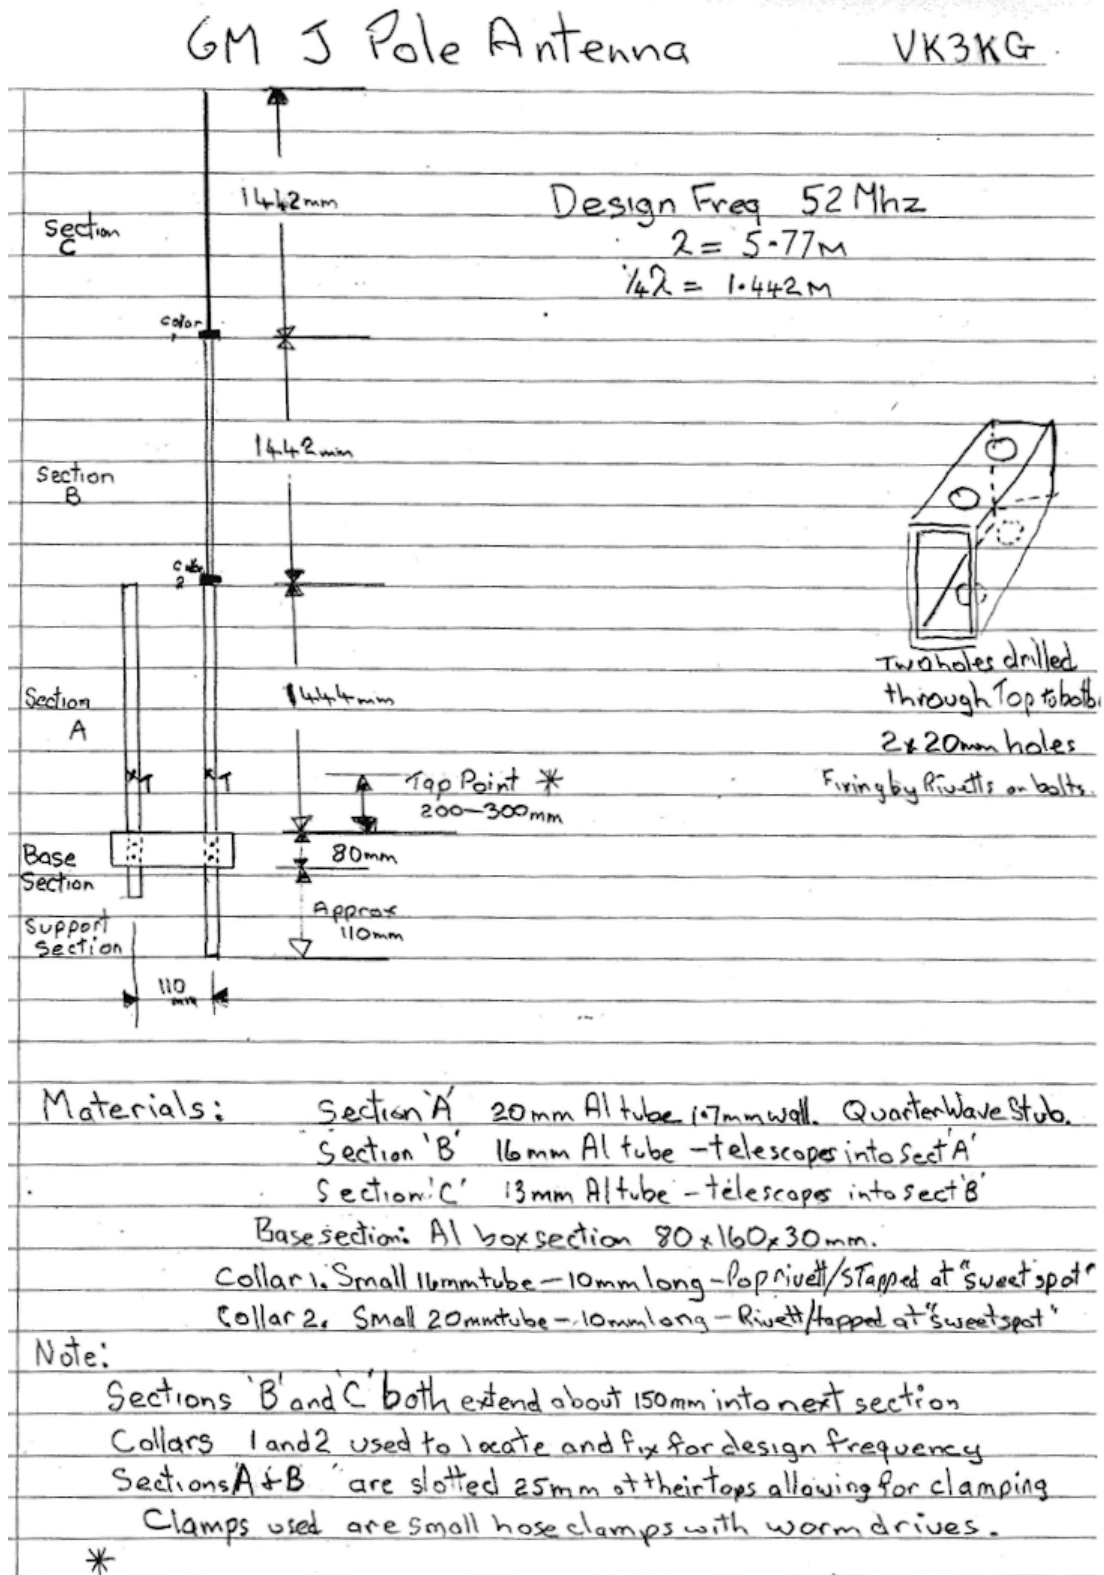 6M J Pole Antenna VK3KG
1442mm
Design Freq 52 Mhz
Section
C
λ = 5.77M
¼λ = 1.442M
Collar
1
1442mm
Section
B
Collar
2
Two holes drilled
through Top to bottom
Section
A
1444mm
2x20mm holes
*T *T
Tap Point *
200-300mm
Fixing by Rivetts or bolts.
Base
Section
80mm
Support
Section
Approx
110mm
110
mm
Materials: Section 'A' 20mm Al tube 1.7mm wall. Quarter Wave Stub.
Section 'B' 16mm Al tube - telescopes into Sect 'A'
Section 'C' 13mm Al tube - telescopes into sect 'B'
Base section: Al box section 80x160x30mm.
Collar 1. Small 16mm tube - 10mm long - Pop rivett/STapped at "sweet spot"
Collar 2. Small 20mm tube - 10mm long - Rivett/tapped at "sweet spot"
Note:
Sections 'B' and 'C' both extend about 150mm into next section
Collars 1 and 2 used to locate and fix for design frequency
Sections A + B are slotted 25mm at their tops allowing for clamping
Clamps used are small hose clamps with worm drives.
*